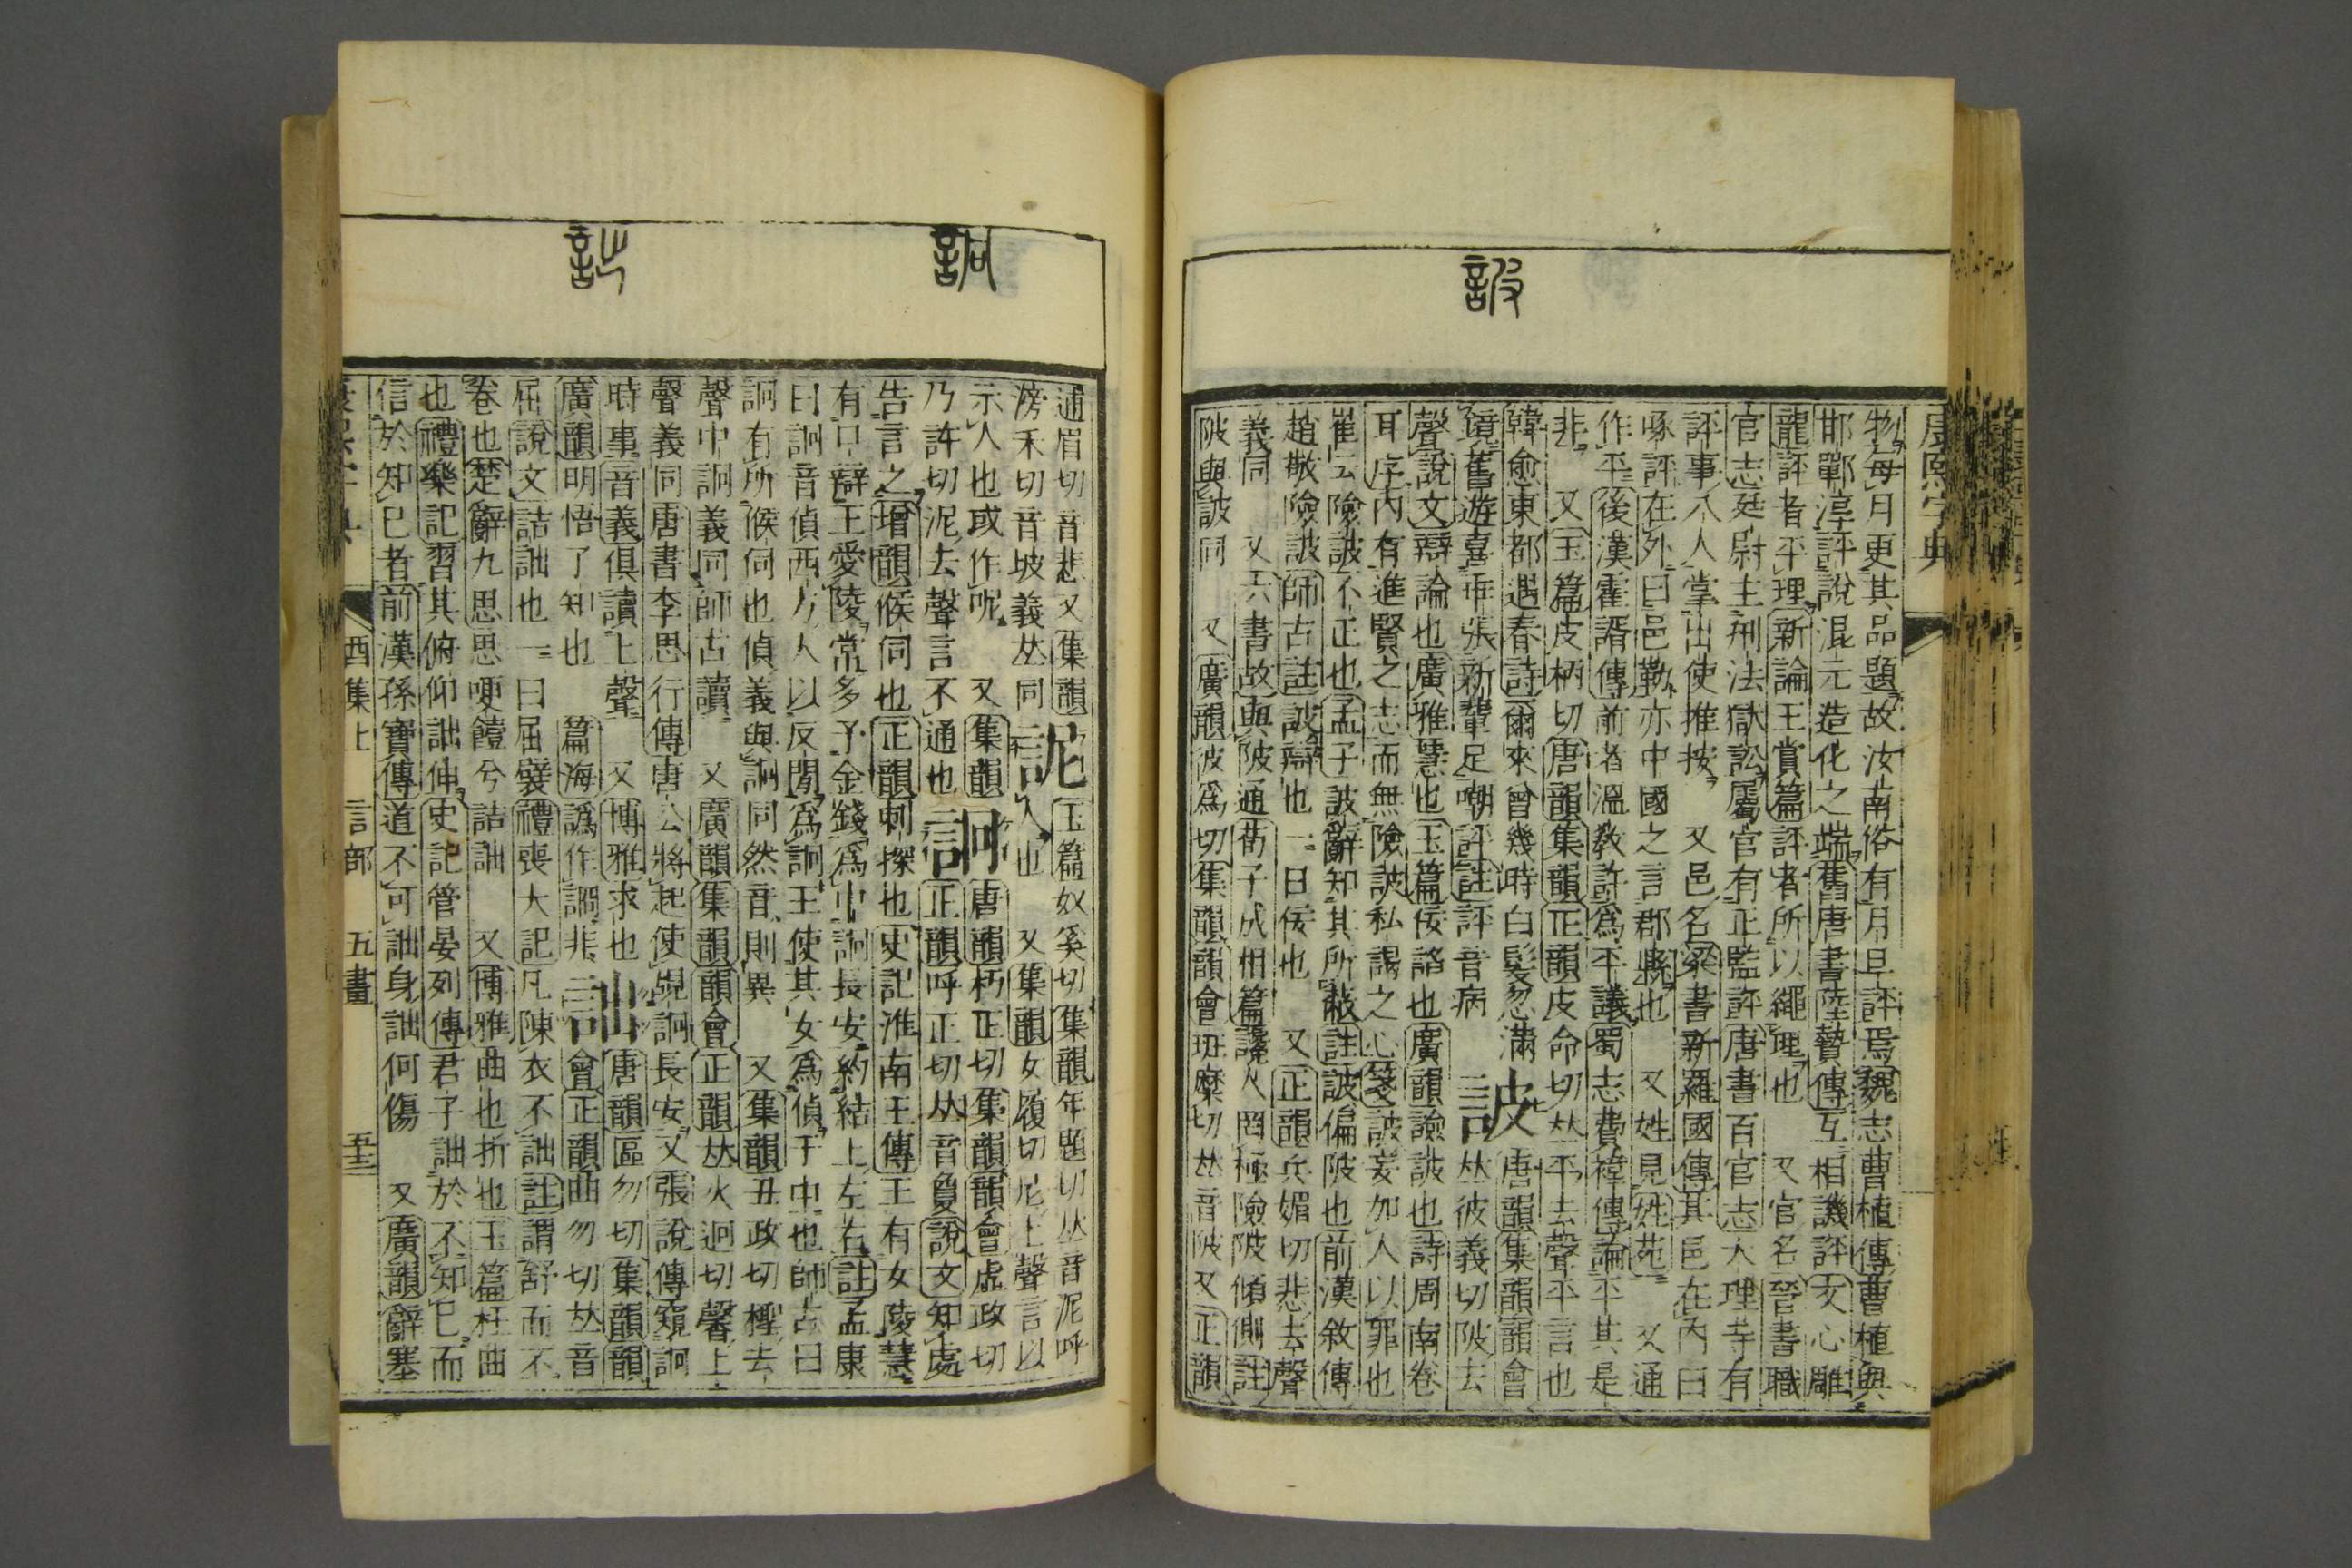 詖
康熙字典
物每月更其品題故汝南俗有月旦評焉魏志曹植傳曹植與
邯鄲淳評說混元造化之端舊唐書陸贄傳互相譏評文心雕
龍評者平理新論王賞篇評者所以繩理也 又官名晉書職
官志廷尉主刑法獄訟屬官有正監評唐書百官志大理寺有
評事八人掌出使推按 又邑名梁書新羅國傳其邑在內曰
啄評在外曰邑勒亦中國之言郡縣也 又姓見姓苑 又通
作平後漢霍諝傳前者溫敎許爲平議蜀志費褘傳論平其是
非 又玉篇皮柄切唐韻集韻正韻皮命切𠀤平去聲平言也
韓愈東都遇春詩爾來曾幾時白髮忽滿詖唐韻集韻韻會
鏡舊遊喜乖張新輩足嘲評註評音病𠀤彼義切陂去
聲說文辯論也廣雅慧也玉篇佞諂也廣韻譣詖也詩周南卷
耳序內有進賢之志而無險詖私謁之心箋詖妄加人以罪也
崔云險詖不正也孟子詖辭知其所蔽註詖偏陂也前漢敘傳
趙敬險詖師古註詖辯也一曰佞也 又正韻兵媚切悲去聲
義同 又六書故與陂通荀子成相篇讒人罔極險陂傾側註
陂與詖同 又廣韻彼爲切集韻韻會班糜切𠀤音陂又正韻
詗
詘
逋眉切音悲又集韻玉篇奴奚切集韻年題切𠀤音泥呼
滂禾切音坡義𠀤同䛏人也 又集韻女履切尼上聲言以
示人也或作呢 又集韻詗唐韻朽正切集韻韻會虛政切
乃許切泥去聲言不通也正韻呼正切𠀤音敻說文知處
告言之增韻候伺也正韻刺探也史記淮南王傳王有女陵慧
有口辯王愛陵常多予金錢爲中詗長安約結上左右註孟康
曰詗音偵西方人以反閒爲詗王使其女爲偵于中也師古曰
詗有所候伺也偵義與詗同然音則異 又集韻丑政切檉去
聲中詗義同師古讀 又廣韻集韻韻會正韻𠀤火迥切馨上
聲義同唐書李思行傳唐公將起使覘詗長安又張說傳窺詗
時事音義俱讀上聲 又博雅求也詘唐韻區勿切集韻韻
廣韻明悟了知也 篇海譌作𧭈非會正韻曲勿切𠀤音
屈說文詰詘也一曰屈襞禮喪大記凡陳衣不詘註謂舒而不
卷也楚辭九思思哽饐兮詰詘 又博雅曲也折也玉篇枉曲
也禮樂記習其俯仰詘伸史記管晏列傳君子詘於不知己而
信於知己者前漢孫寶傳道不可詘身詘何傷 又廣韻辭塞
酉集上 言部 五畫 五十三